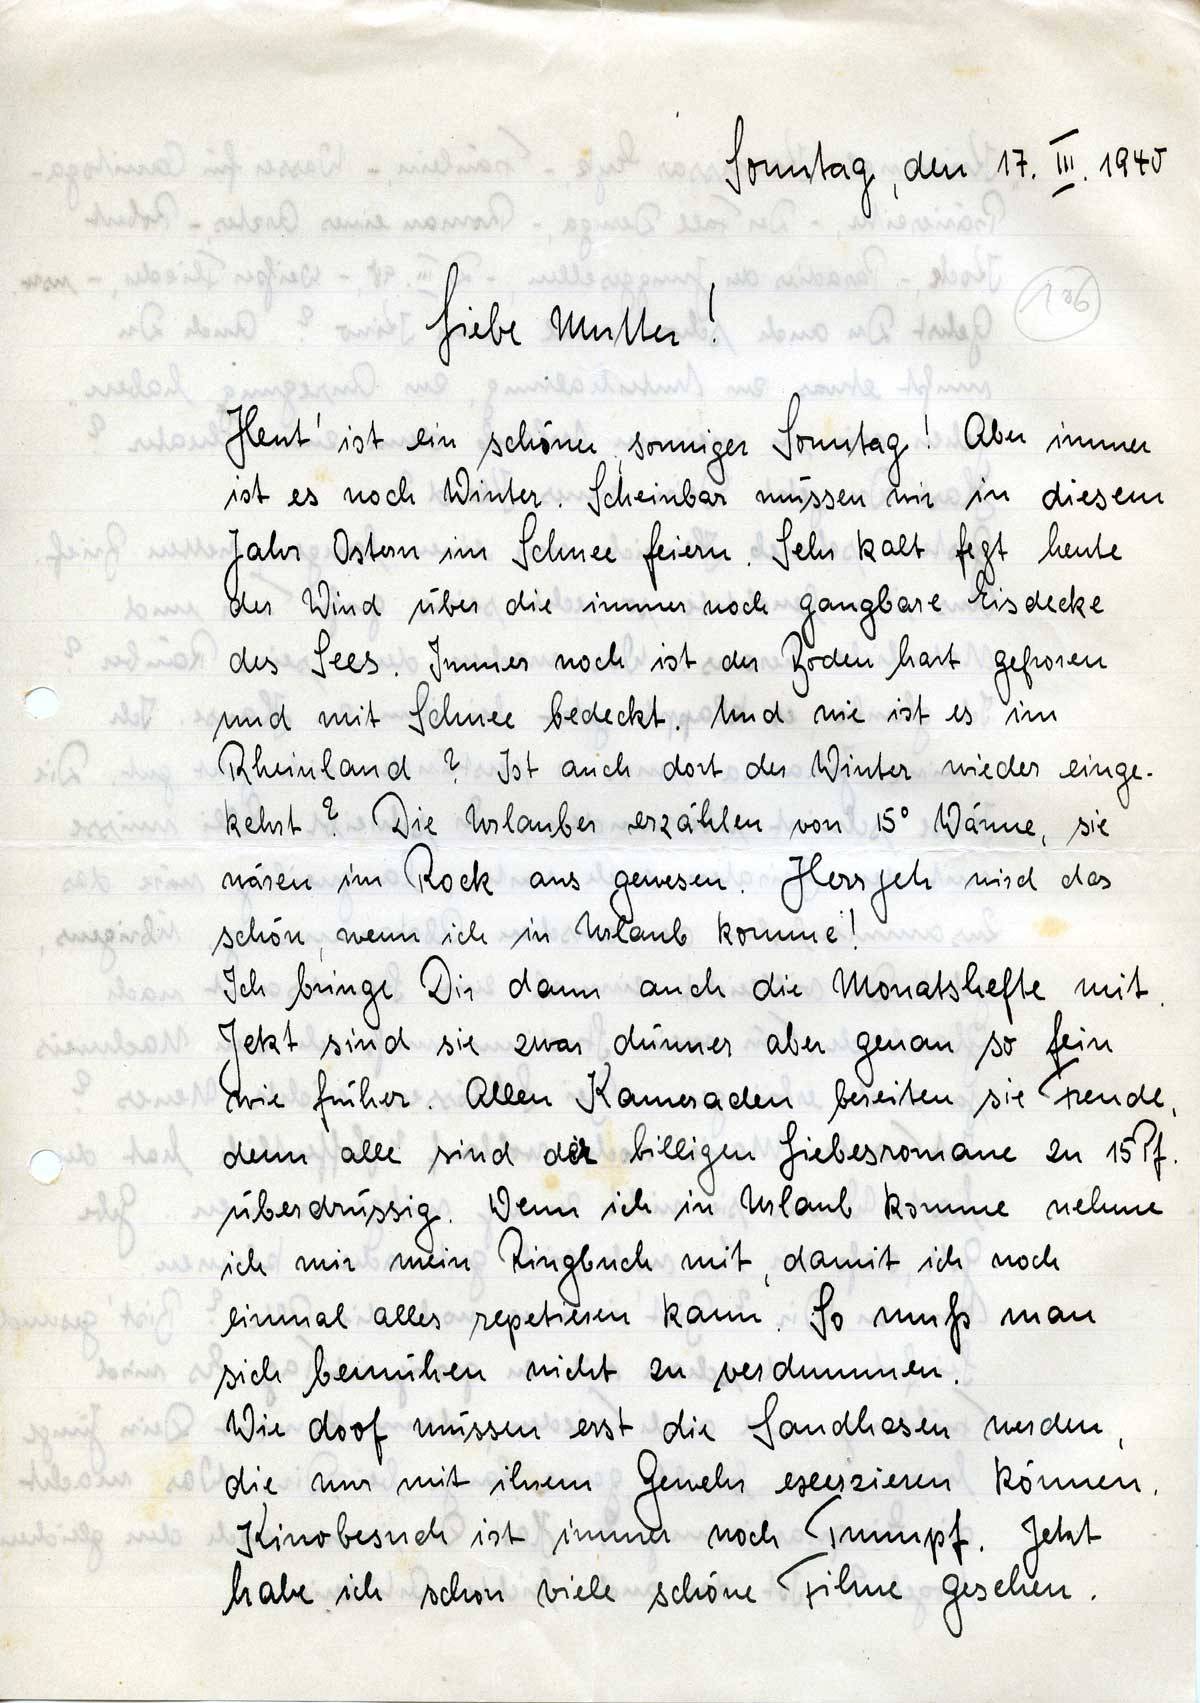 Sonntag, den 17. III. 1940
106
Liebe Mutter!
Heut' ist ein schöner, sonniger Sonntag! Aber immer
ist es noch Winter. Scheinbar müssen wir in diesem
Jahr Ostern im Schnee feiern. Sehr kalt fegt heute
der Wind über die immer noch gangbare Eisdecke
des Sees. Immer noch ist der Boden hart gefroren
und mit Schnee bedeckt. Und wie ist es im
Rheinland? Ist auch dort der Winter wieder einge-
kehrt? Die Urlauber erzählen von 15° Wärme, sie
wären im Rock aus gewesen. Herrjeh wird das
schön, wenn ich in Urlaub komme!
Ich bringe Dir dann auch die Monatshefte mit.
Jetzt sind sie zwar dünner aber genau so fein
wie früher. Allen Kameraden bereiten sie Freude,
denn alle sind der billigen Liebesromane zu 15 Pf.
überdrüssig. Wenn ich in Urlaub komme nehme
ich mir mein Ringbuch mit, damit ich noch
einmal alles repetieren kann. So muß man
sich bemühen nicht zu verdummen.
Wie doof müssen erst die Sandhasen werden,
die nur mit ihrem Gewehr exerzieren können.
Kinobesuch ist immer noch Trumpf. Jetzt
habe ich schon viele schöne Filme gesehen.